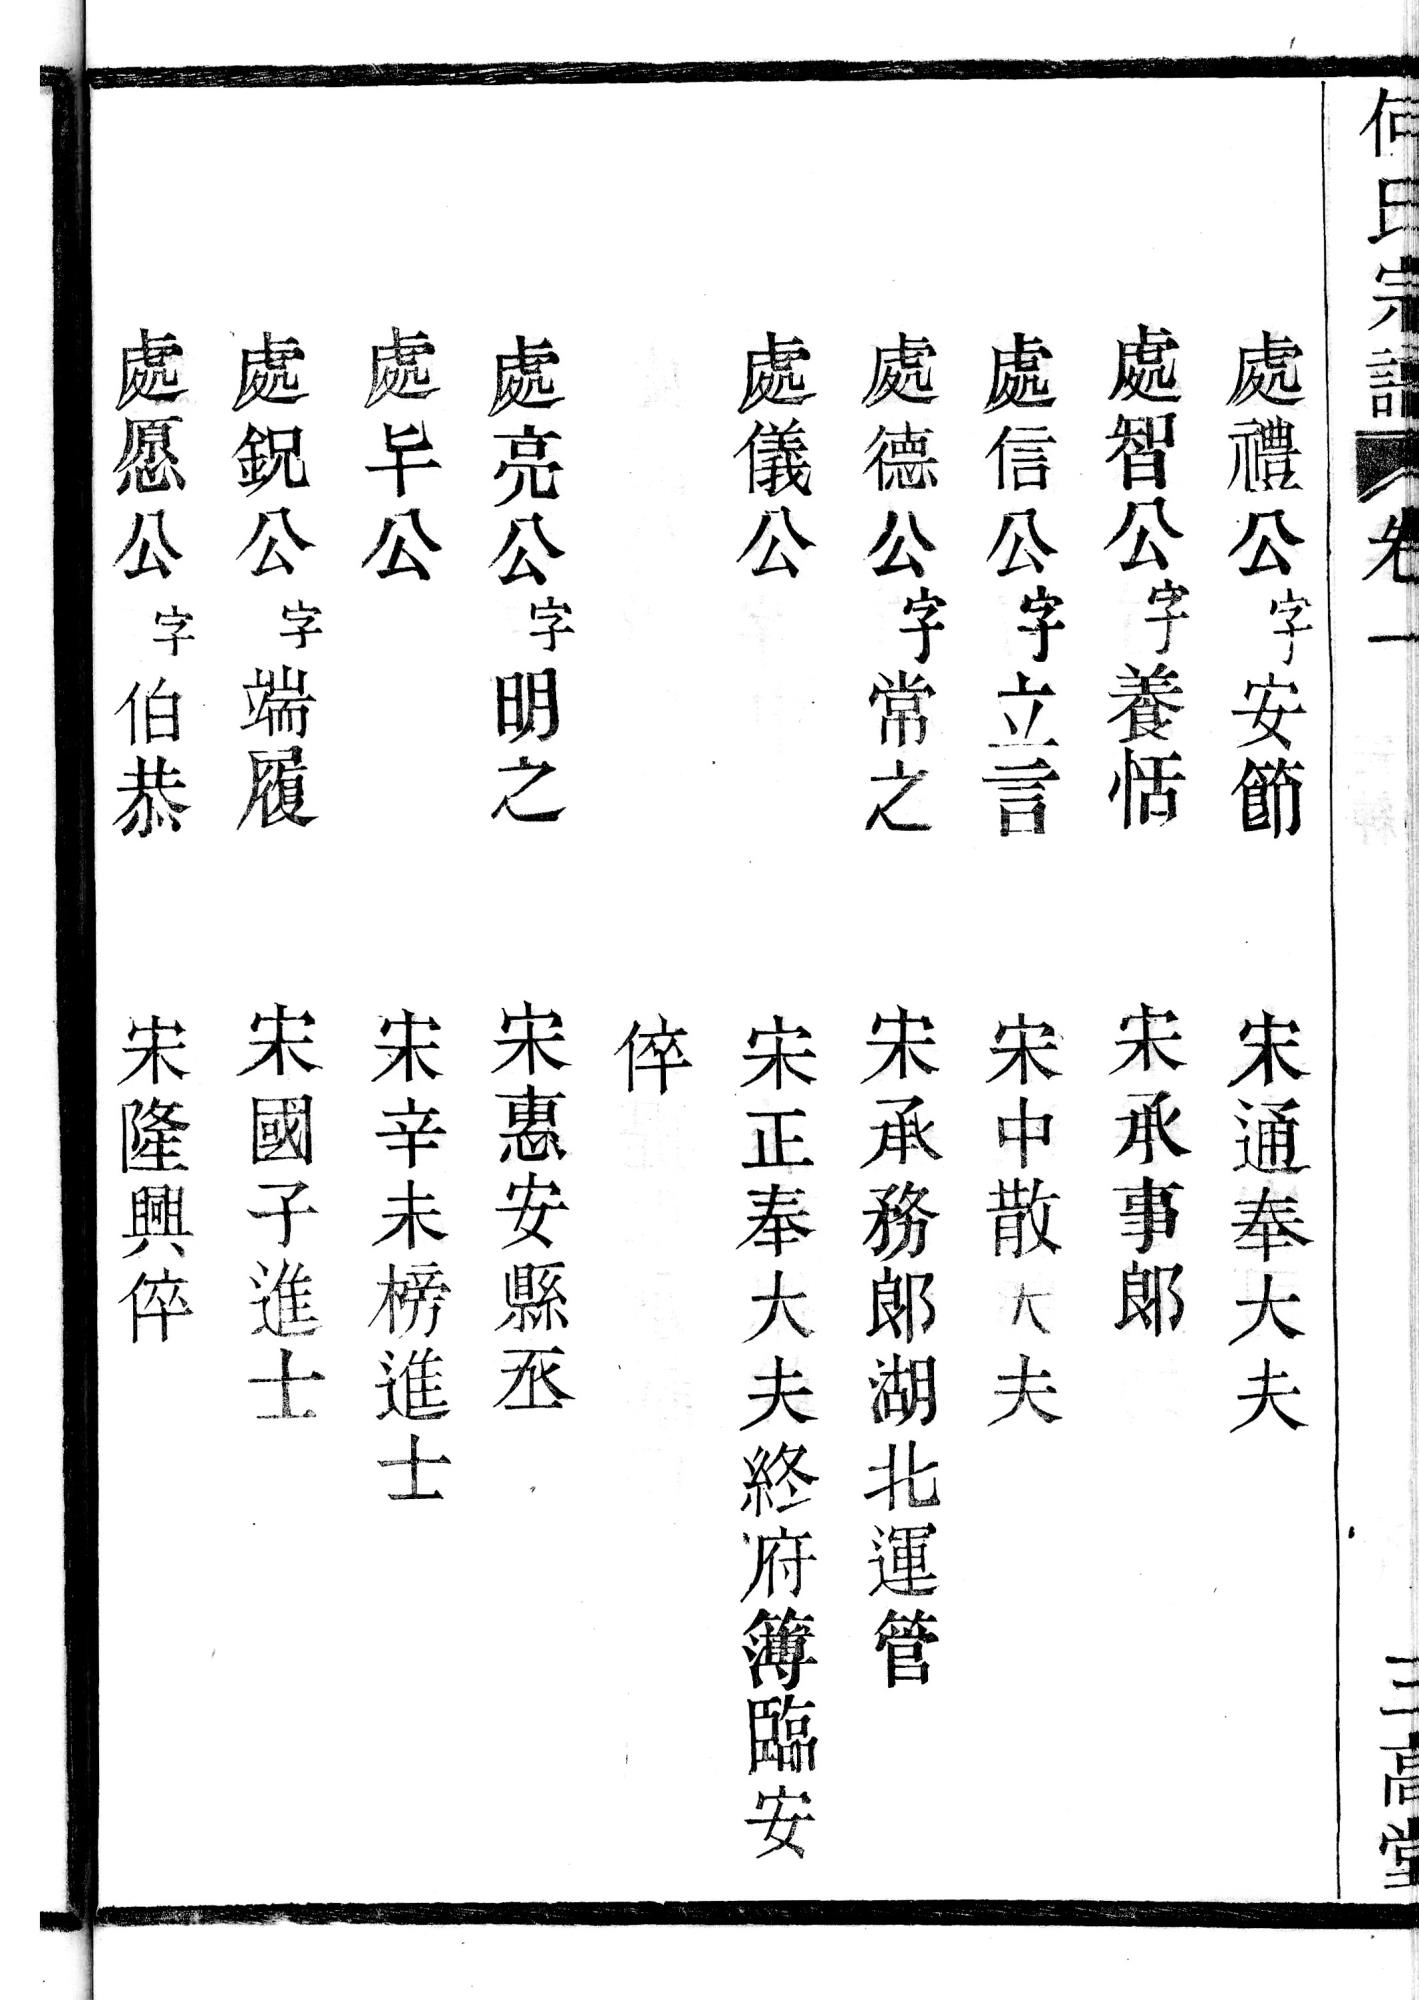 何氏宗譜 卷一 三高堂
處禮公字安節 宋通奉大夫
處智公字養恬 宋承事郎
處信公字立言 宋中散大夫
處德公字常之 宋承務郎湖北運管
處儀公 宋正奉大夫終府簿臨安
倅
處亮公字明之 宋惠安縣丞
處厸公 宋辛未榜進士
處鋭公字端履 宋國子進士
處愿公字伯恭 宋隆興倅